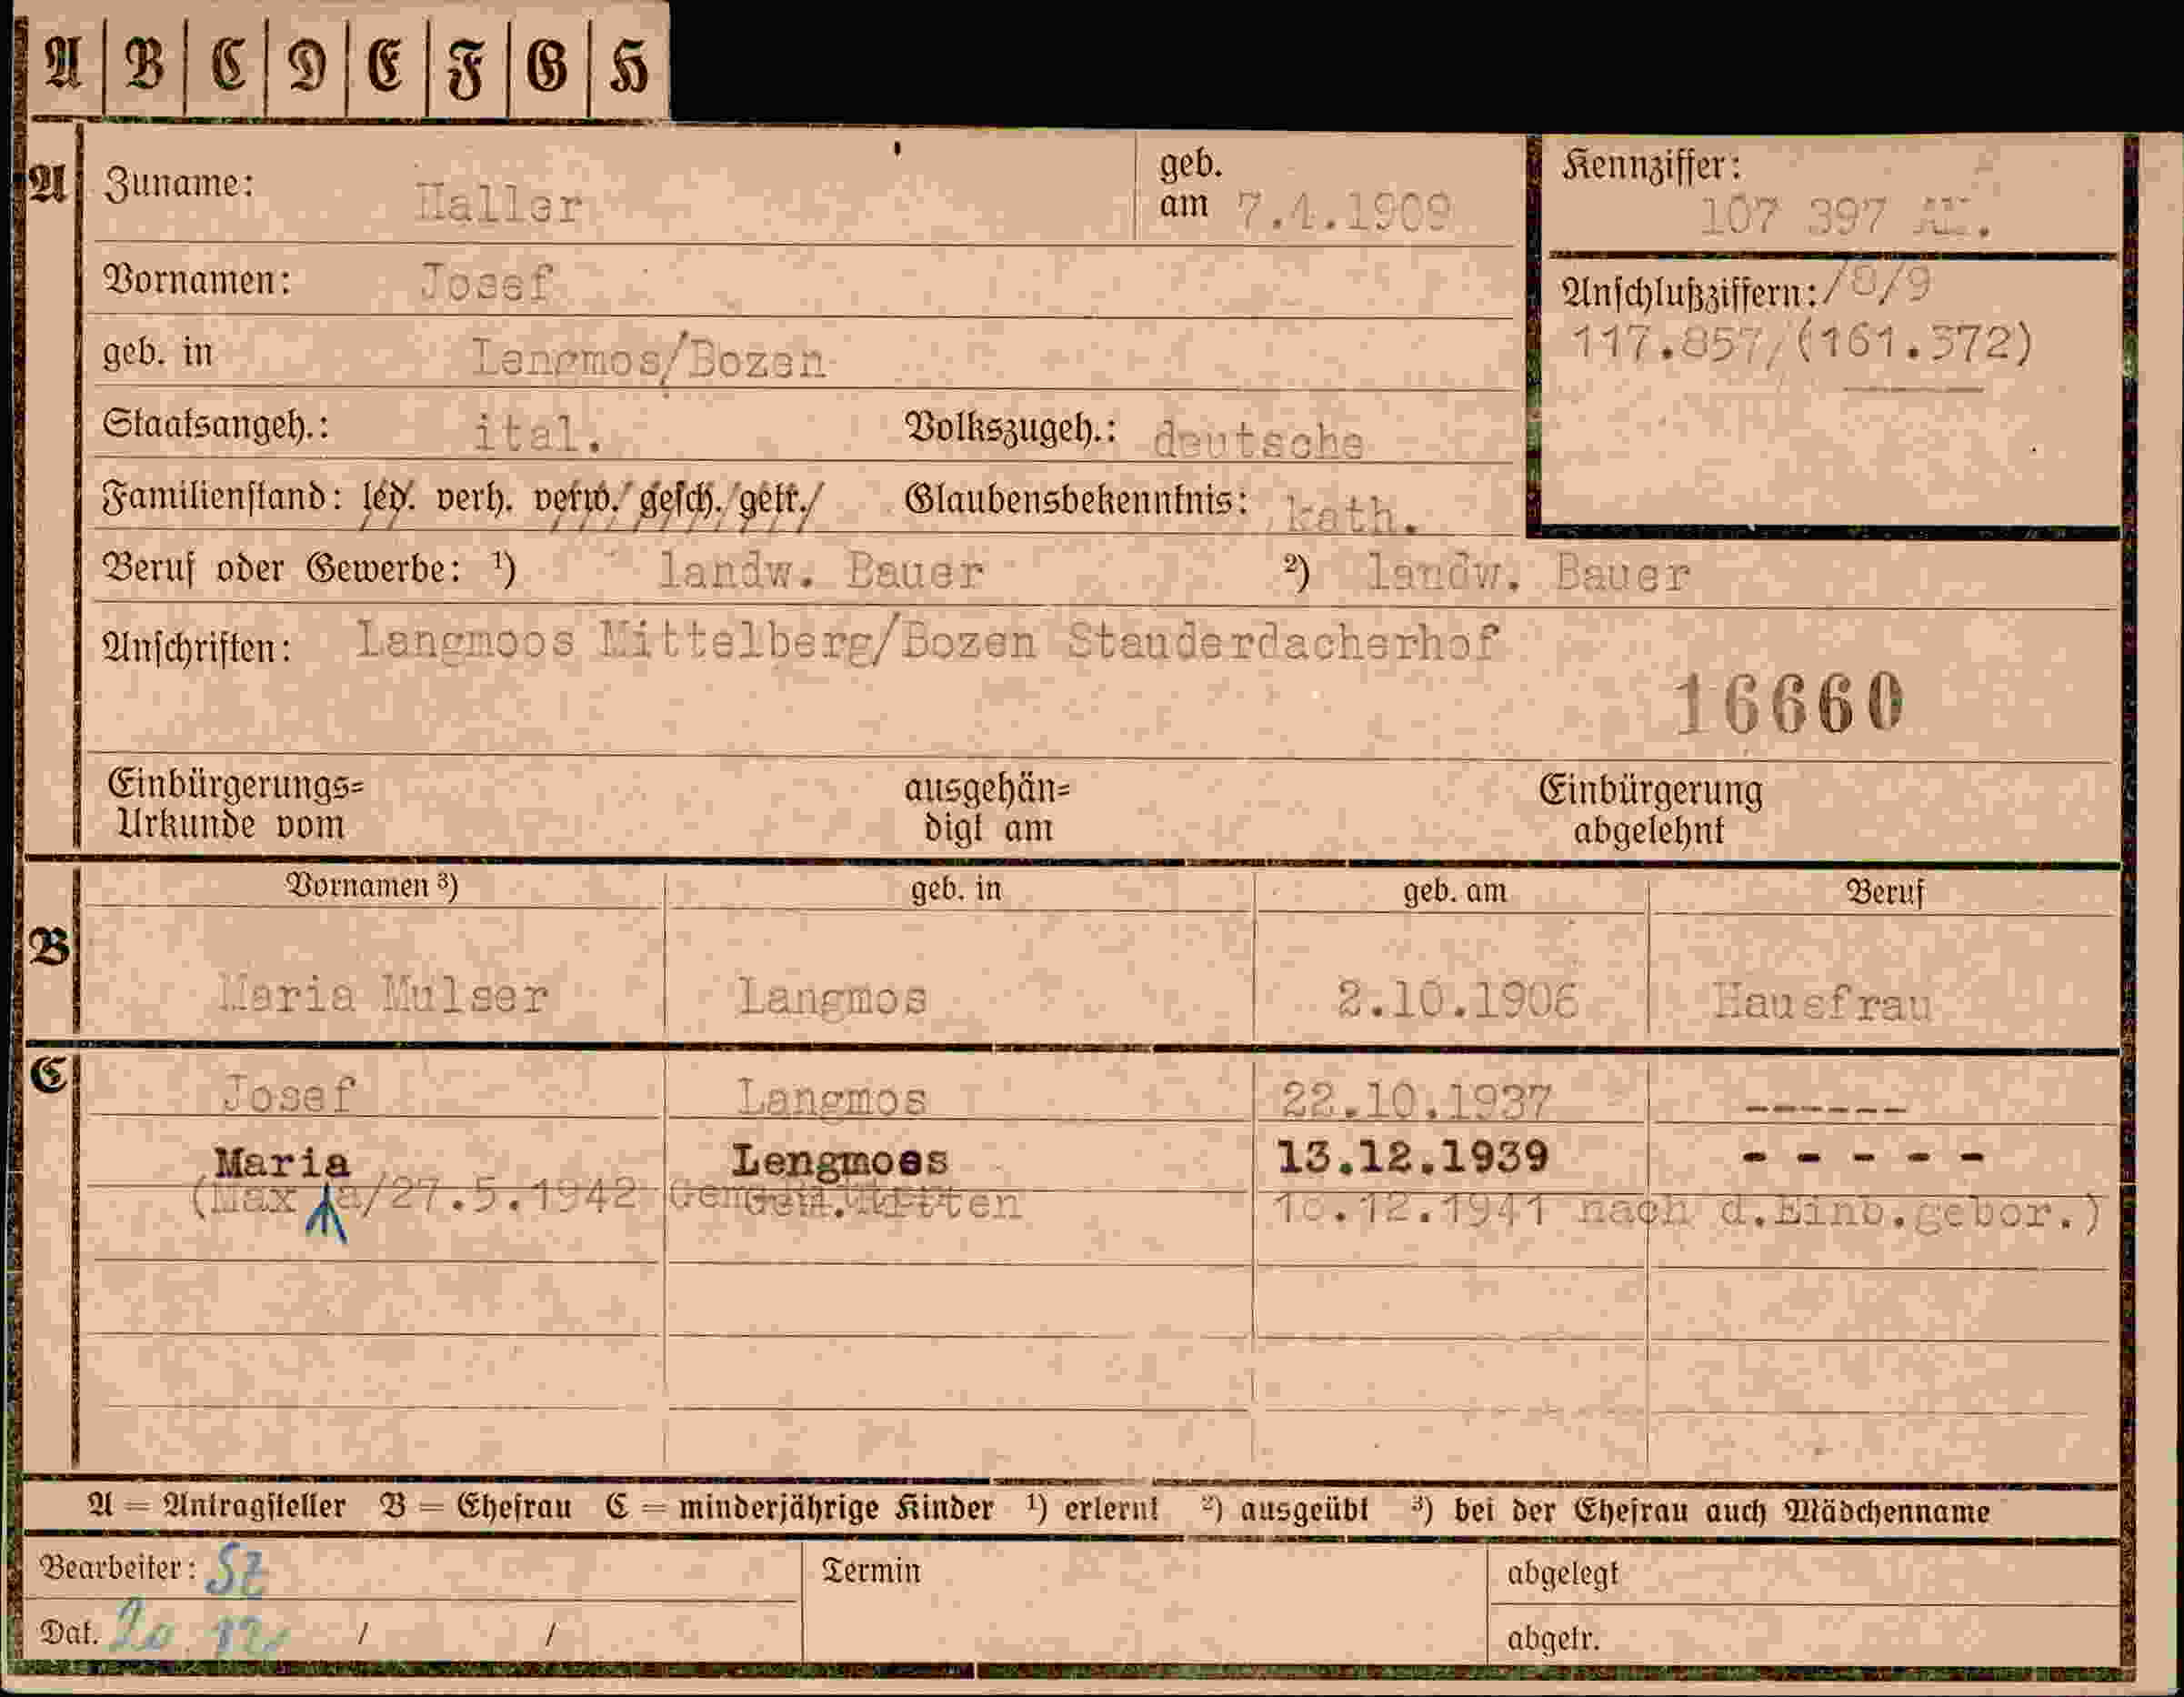 A B C D E F G H
A Zuname: Haller geb. am 7.4.1909 Kennziffer: 107 397
Anschlußziffern: /8/9
117.857/(161.372)
Vornamen: Josef
geb. in Lengmos/Bozen
Staatsangeh.: ital. Volkszugeh.: deutsche
Familienstand: led. verh. verw. gesch. getr. Glaubensbekenntnis: kath.
Beruf oder Gewerbe: ¹) landw. Bauer ²) landw. Bauer
Anschriften: Langmoos Mittelberg/Bozen Stauderdacherhof
16660
Einbürgerungs= ausgehän= Einbürgerung
Urkunde vom digt am abgelehnt
Vornamen ³) geb. in geb. am Beruf
B Maria Mulser Langmos 2.10.1906 Hausfrau
C Josef Langmos 22.10.1937 ------
Maria Lengmoos 13.12.1939 - - - - -
(Max /27.5.1942 10.12.1941 nach d.Einb.gebor.)
A = Antragsteller B = Ehefrau C = minderjährige Kinder ¹) erlernt ²) ausgeübt ³) bei der Ehefrau auch Mädchenname
Bearbeiter: SZ Termin abgelegt
Dat. 20. 12. / / abgetr.